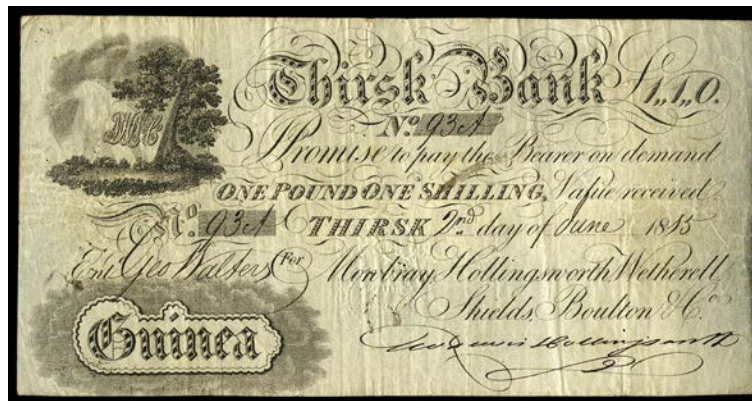 Thirsk Bank £1,,1,,0.
No. 93A
I Promise to pay the Bearer on demand
ONE POUND ONE SHILLING, Value received.
No. 93A THIRSK 2nd day of June 1815
Entd. Geo Walters For Monbray, Hollingsworth, Wetherell
Shields, Boulton & Co.
Guinea
Hollingsworth